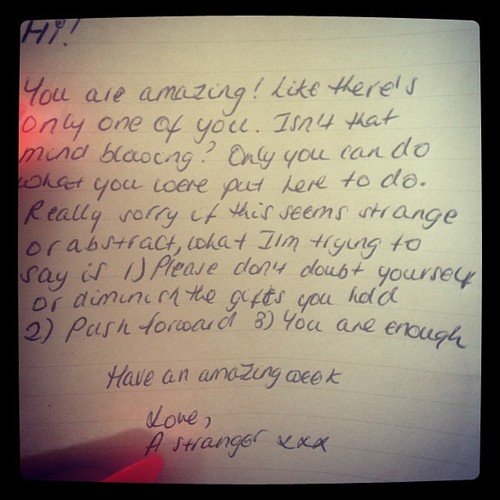 Hi!
You are amazing! Like there's
only one of you. Isn't that
mind blowing? Only you can do
what you were put here to do.
Really sorry if this seems strange
or abstract, what I'm trying to
say is 1) Please don't doubt yourself
or diminish the gifts you hold
2) Push forward 3) You are enough
Have an amazing week
Love,
A stranger xxx